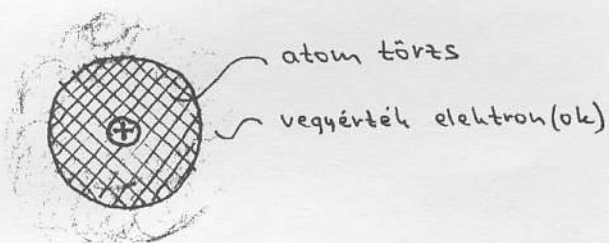 atom törzs
vegyérték elektron(ok)
+